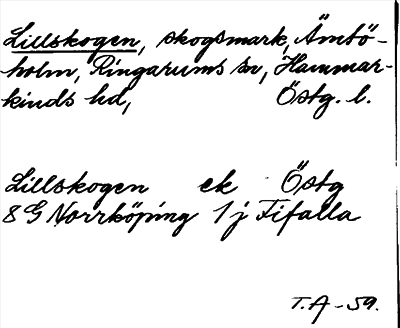 Lillskogen, skogsmark, Ämtö-
holm, Ringarums sn, Hammar-
kinds hd, Östg. l.
Lillskogen ek Östg
8G Norrköping 1j Fifalla
T.A-59.